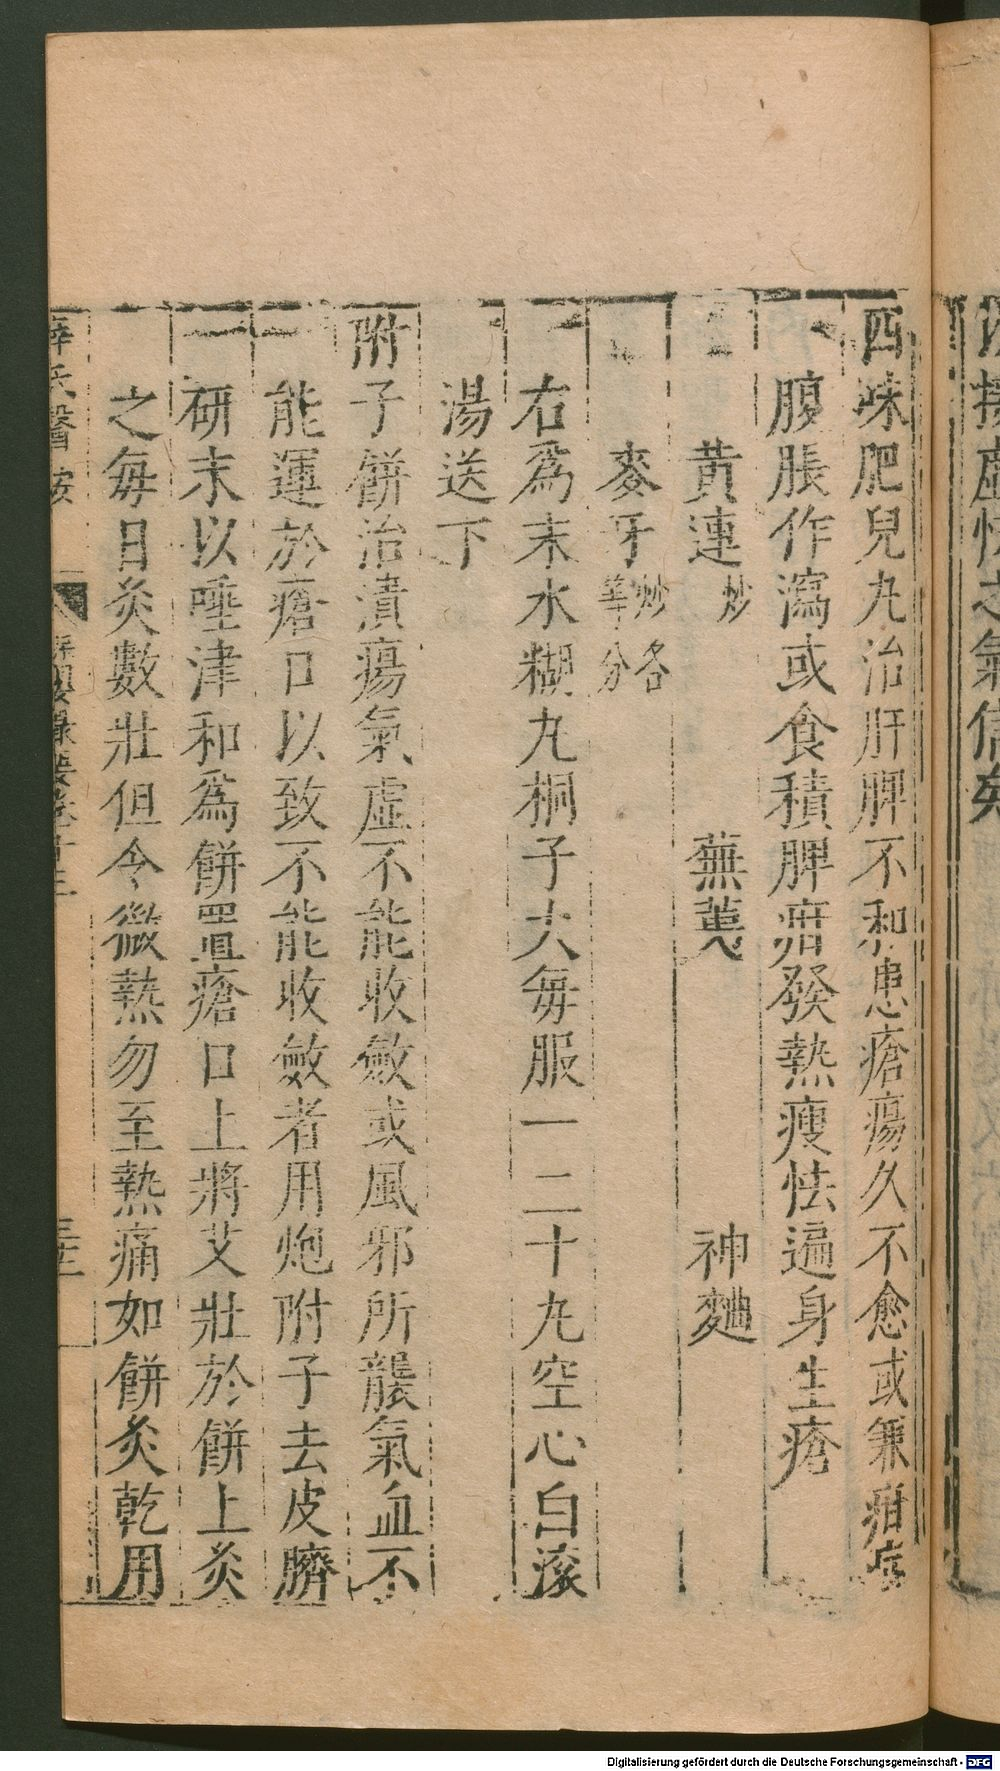 四味肥兒丸治肝脾不和患瘡瘍久不愈或兼疳病
腹脹作瀉或食積脾疳發熱瘦怯遍身生瘡
黃連炒 蕪荑 神麯
麥牙炒各等分
右爲末水糊丸桐子大每服一二十丸空心白滾
湯送下
附子餅治潰瘍氣虛不能收斂或風邪所襲氣血不
能運於瘡口以致不能收斂者用炮附子去皮臍
研末以唾津和爲餅置瘡口上將艾壯於餅上灸
之每日灸數壯但令微熱勿至熱痛如餅灸乾用
薛氏醫按
Digitalisierung gefördert durch die Deutsche Forschungsgemeinschaft - DFG